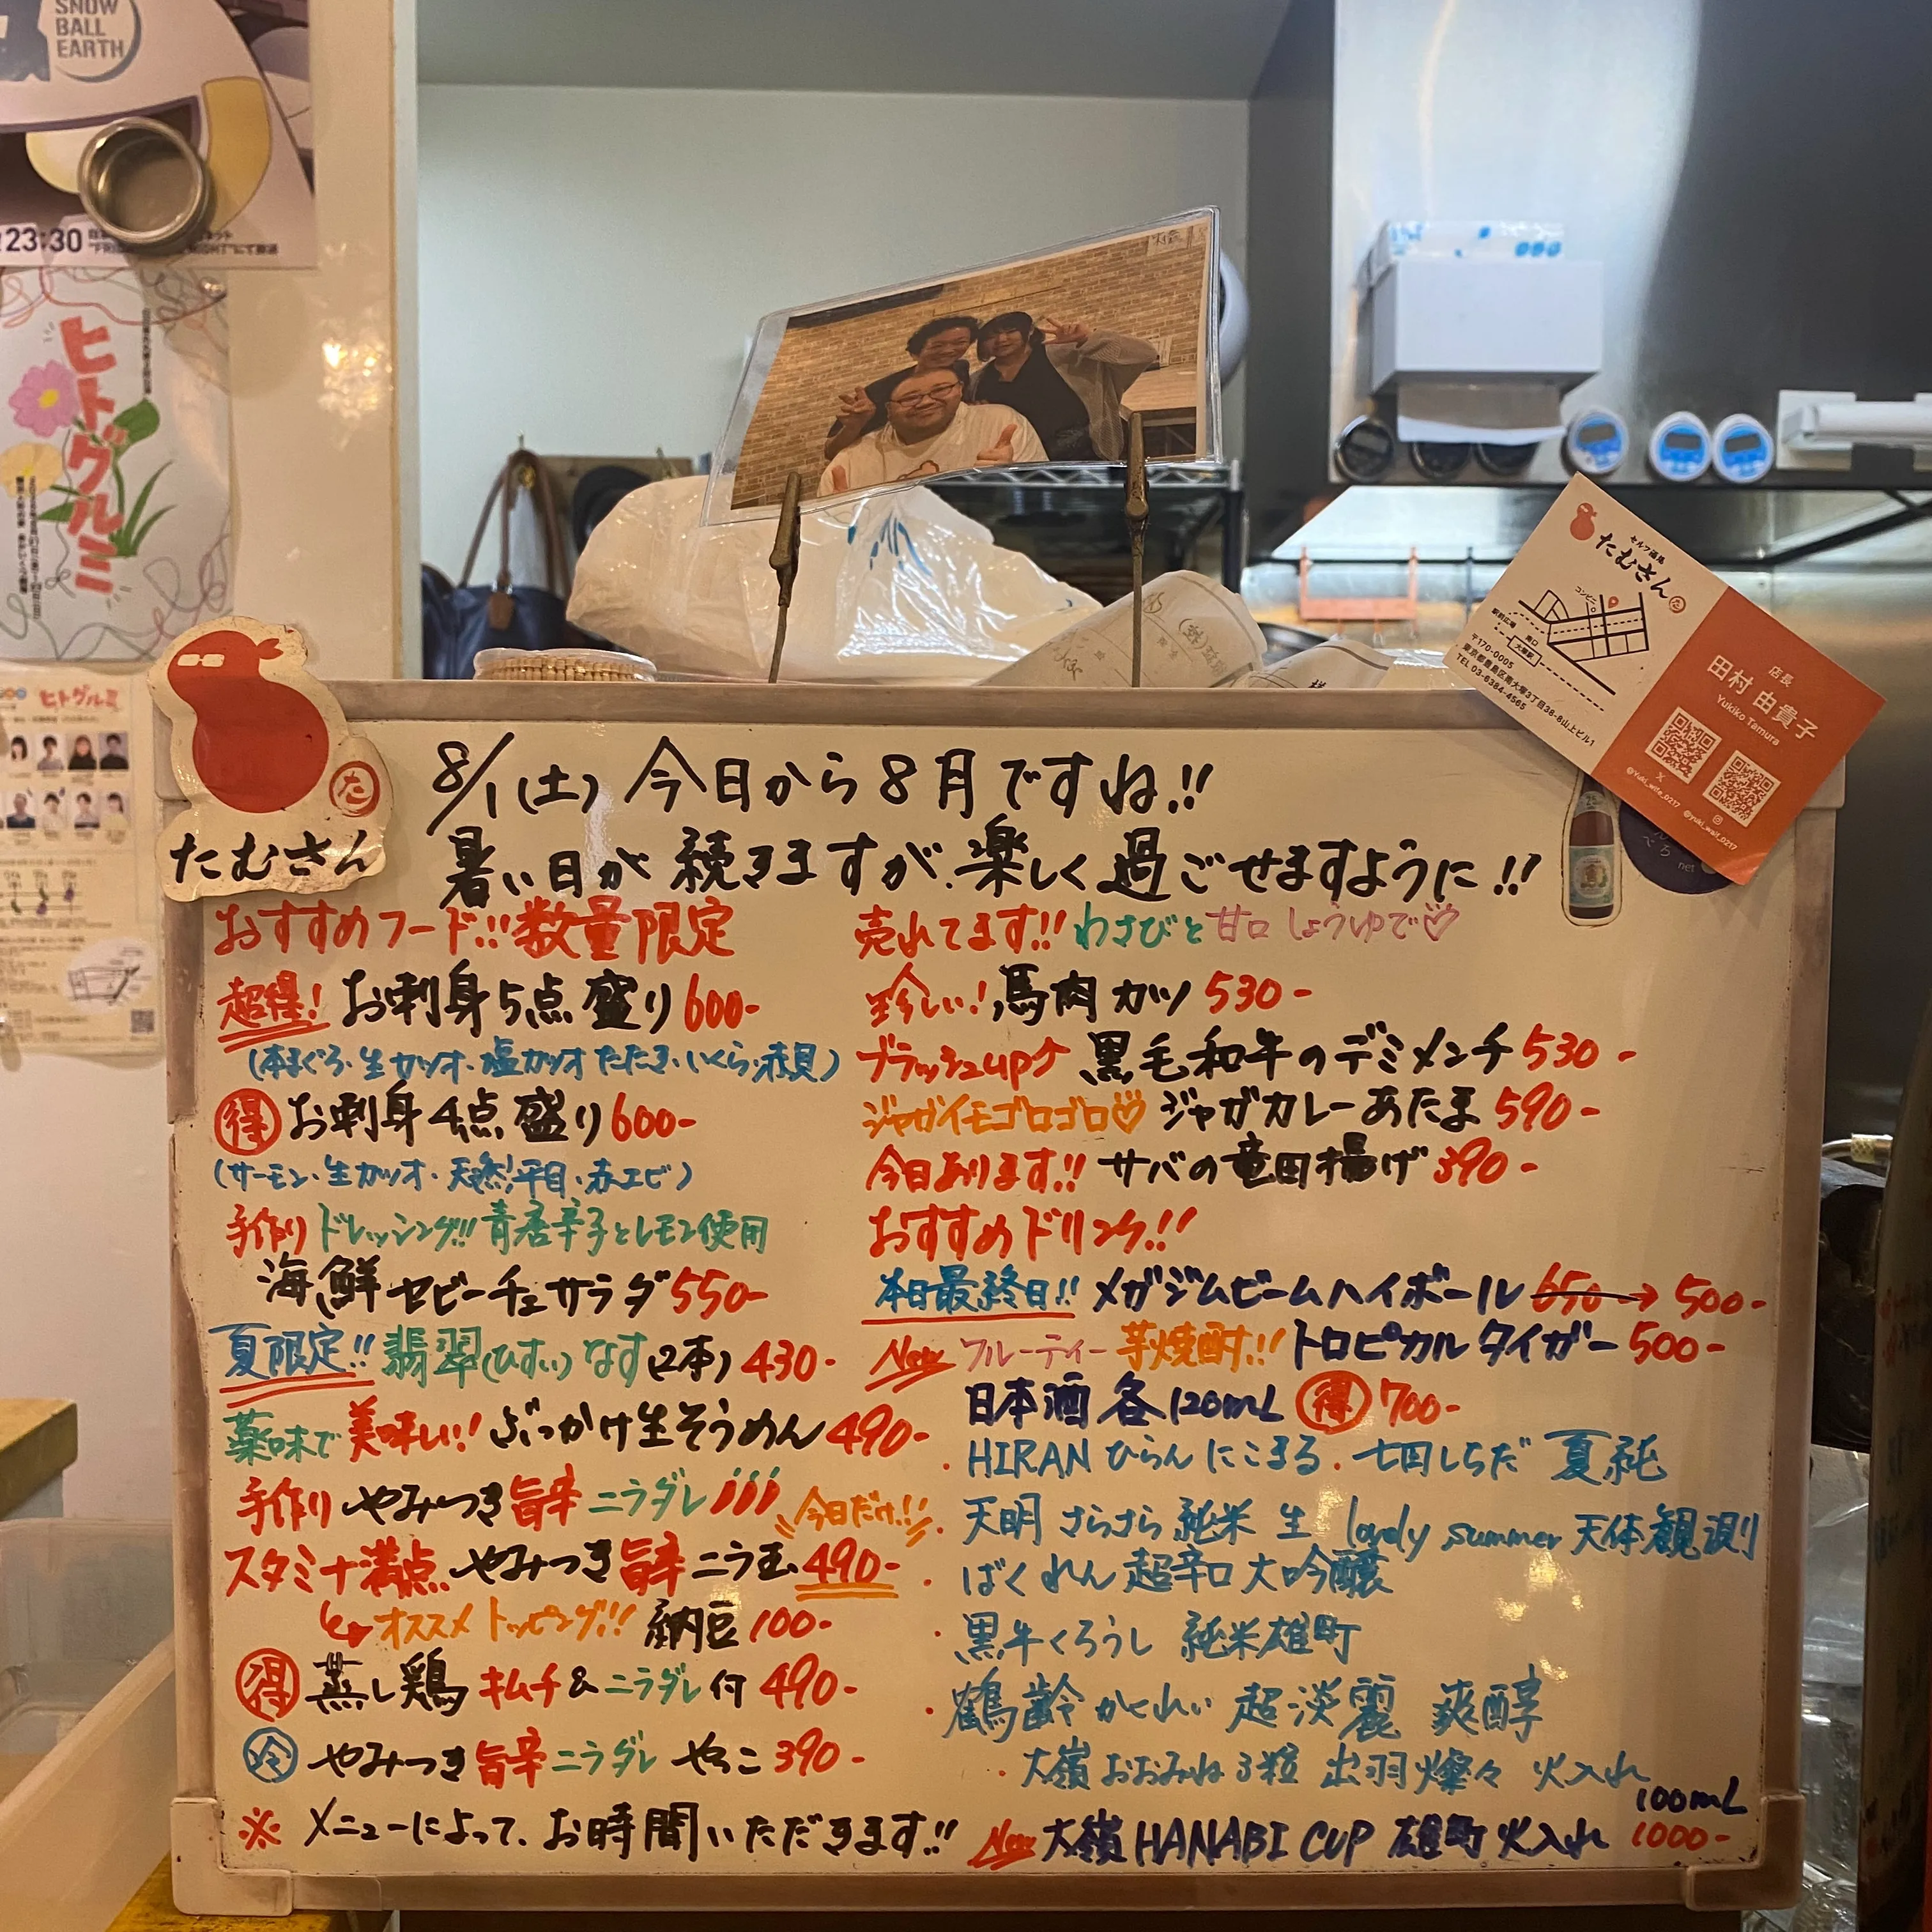 SNOW
BALL
EARTH
23:30
ヒトグルミ
ヒトグルミ
セルフ酒場
たむさん
コンビニ
駅前広場
南口
大塚駅
〒170-0005
東京都豊島区南大塚3丁目38-8山上ビル1
TEL 03-6384-4565
店長
田村 由貴子
Yukiko Tamura
@yuki_wife_0217
@yuki_wait_0217
net
た
たむさん
8/1(土) 今日から8月ですね!!
暑い日が続きますが、楽しく過ごせますように!!
おすすめフード!!数量限定
超得! お刺身5点盛り 600-
(本まぐろ・生カツオ・塩カツオたたき・いくら・赤貝)
得 お刺身4点盛り 600-
(サーモン・生カツオ・天然平目・赤エビ)
手作りドレッシング!!青唐辛子とレモン使用
海鮮セビーチェサラダ 550-
夏限定!! 翡翠(ひすい)なす(2本) 430-
薬味で美味しい! ぶっかけ生そうめん 490-
手作り やみつき旨辛ニラダレ
今日だけ!!
スタミナ満点 やみつき旨辛ニラ玉 490-
オススメトッピング!! 納豆 100-
得 蒸し鶏 キムチ&ニラダレ付 490-
冷 やみつき旨辛ニラダレ やっこ 390-
※メニューによって、お時間いただきます!!
売れてます!! わさびと甘口しょうゆで♡
珍しい! 馬肉カツ 530-
ブラッシュup↑ 黒毛和牛のデミメンチ 530-
ジャガイモゴロゴロ♡ ジャガカレーあたま 590-
今日あります!! サバの竜田揚げ 390-
おすすめドリンク!!
本日最終日!! メガジムビームハイボール 650→500-
New フルーティー芋焼酎!! トロピカルタイガー 500-
日本酒 各120mL 得 700-
・HIRAN ひらん にこまる ・七田しちだ 夏純
・天明 さらさら 純米 生 lovely summer 天体観測
・ばくれん 超辛口 大吟醸
・黒牛くろうし 純米雄町
・鶴齢かくれい 超淡麗 爽醇
・大嶺おおみね 3粒 出羽燦々 火入れ
New 大嶺 HANABI CUP 雄町 火入れ 100mL 1000-